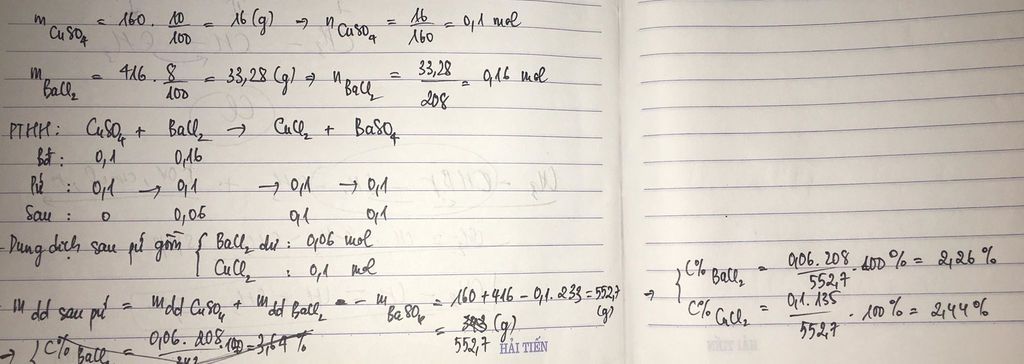 m CuSO₄ = 160 . 10/100 = 16 (g) → n CuSO₄ = 16/160 = 0,1 mol
m BaCl₂ = 416 . 8/100 = 33,28 (g) → n BaCl₂ = 33,28/208 = 0,16 mol
PTHH: CuSO₄ + BaCl₂ → CuCl₂ + BaSO₄
Bđ: 0,1 0,16
Pứ: 0,1 → 0,1 → 0,1 → 0,1
Sau: 0 0,06 0,1 0,1
- Dung dịch sau pứ gồm { BaCl₂ dư: 0,06 mol
CuCl₂: 0,1 mol
- m dd sau pứ = m dd CuSO₄ + m dd BaCl₂ - m BaSO₄ = 160 + 416 - 0,1.233 = 552,7 (g)
= (g)
552,7
HẢI TIẾN
→ { C% BaCl₂ = 0,06.208 . 100 = 3,64 %
→ { C% BaCl₂ = 0,06.208/552,7 . 100 % = 2,26 %
C% CuCl₂ = 0,1.135/552,7 . 100 % = 2,44 %